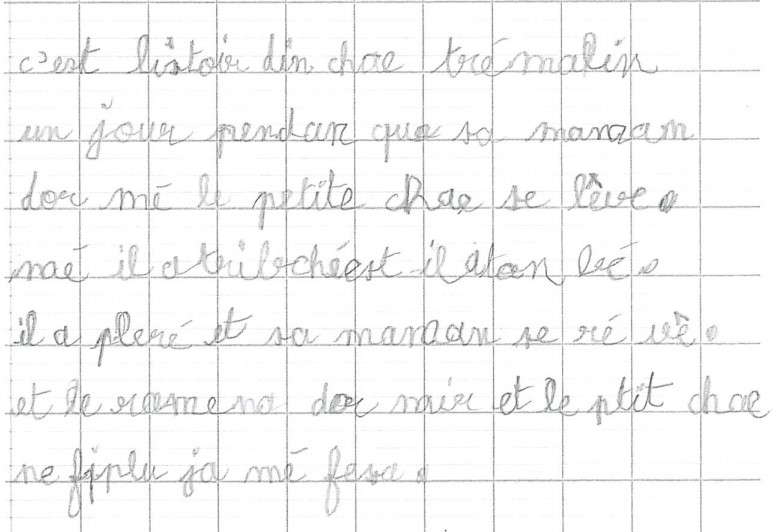 c'est listoir din chae tré malin
un jour pendan que sa mamam
dor mé le petite chae se lêve.
maé il a tribchéest il atan bé.
il a pleré et sa maman se ré vè.
et le ramena dor mir et le ptit chae
ne fiplu ja mé fesa.